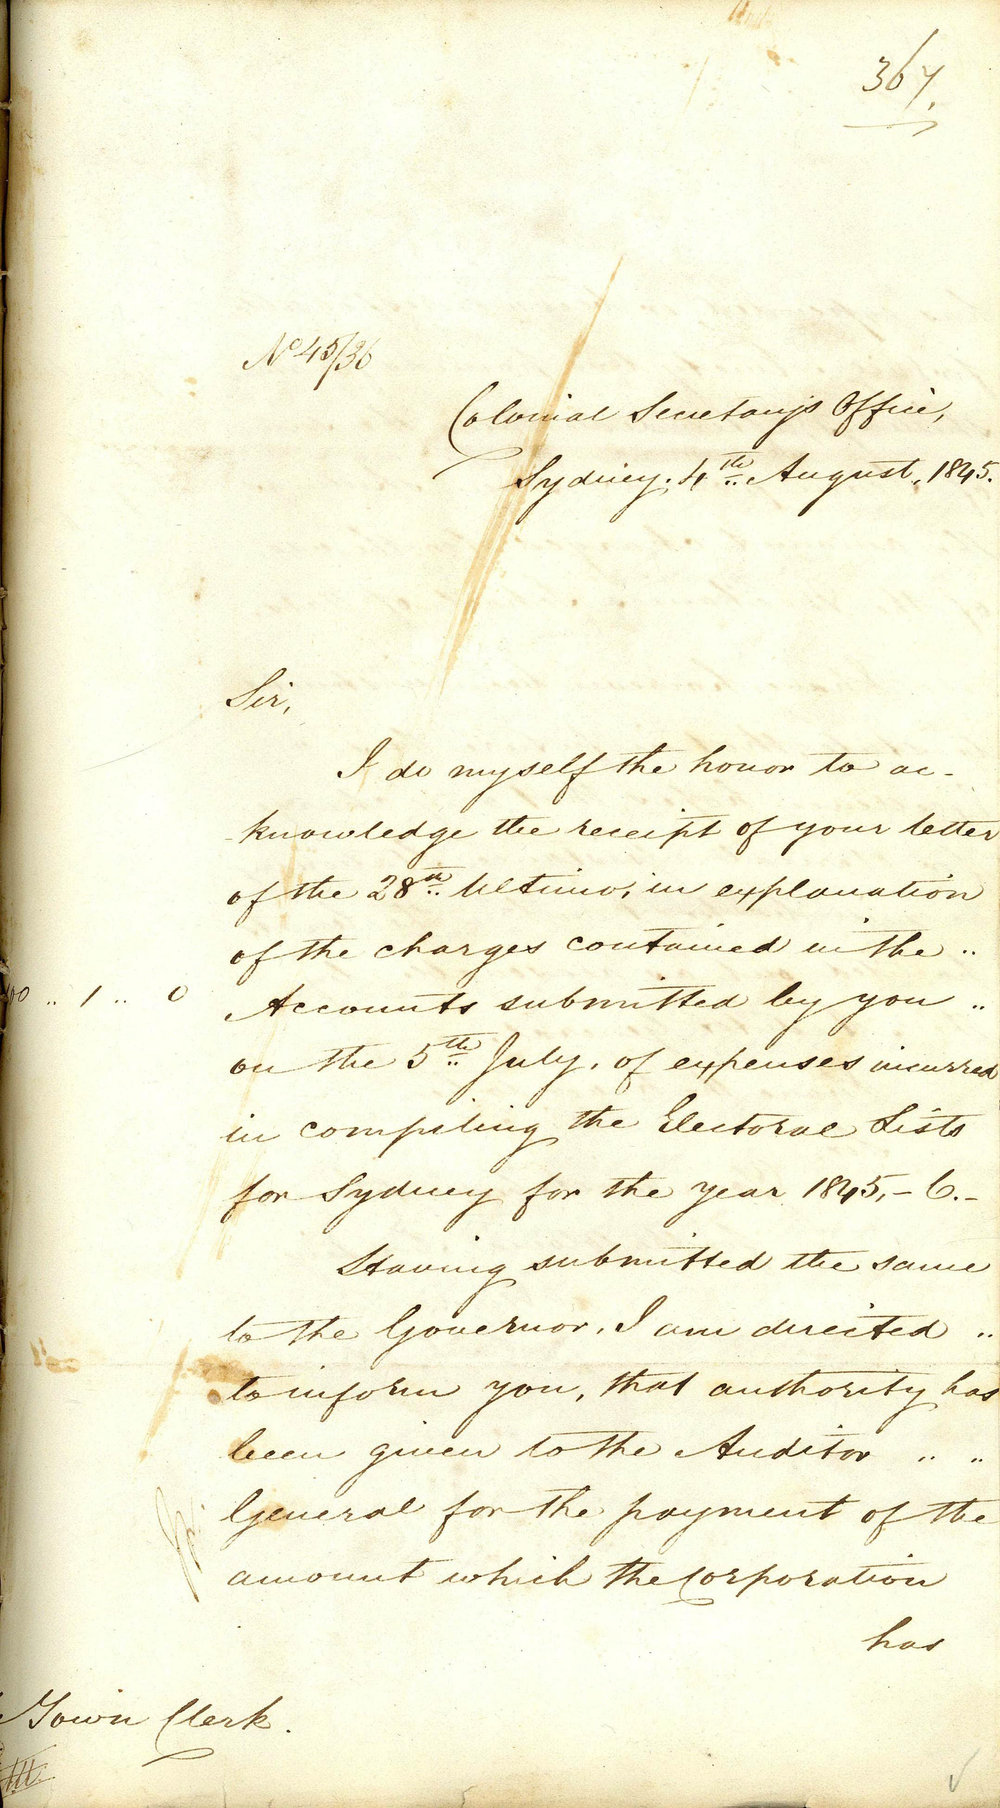 367.
No 45/36
Colonial Secretary's Office,
Sydney. 4th August, 1845.
Sir,
I do myself the honor to ac-
knowledge the receipt of your letter
of the 28th Ultimo, in explanation
of the charges contained in the ..
.. 1 .. 0
Accounts submitted by you ..
on the 5th July, of expenses incurred
in compiling the Electoral Lists
for Sydney for the year 1845,-6.-
Having submitted the same
to the Governor, I am directed ..
to inform you, that authority has
been given to the Auditor .. ..
General for the payment of the
amount which the Corporation
has
Town Clerk.